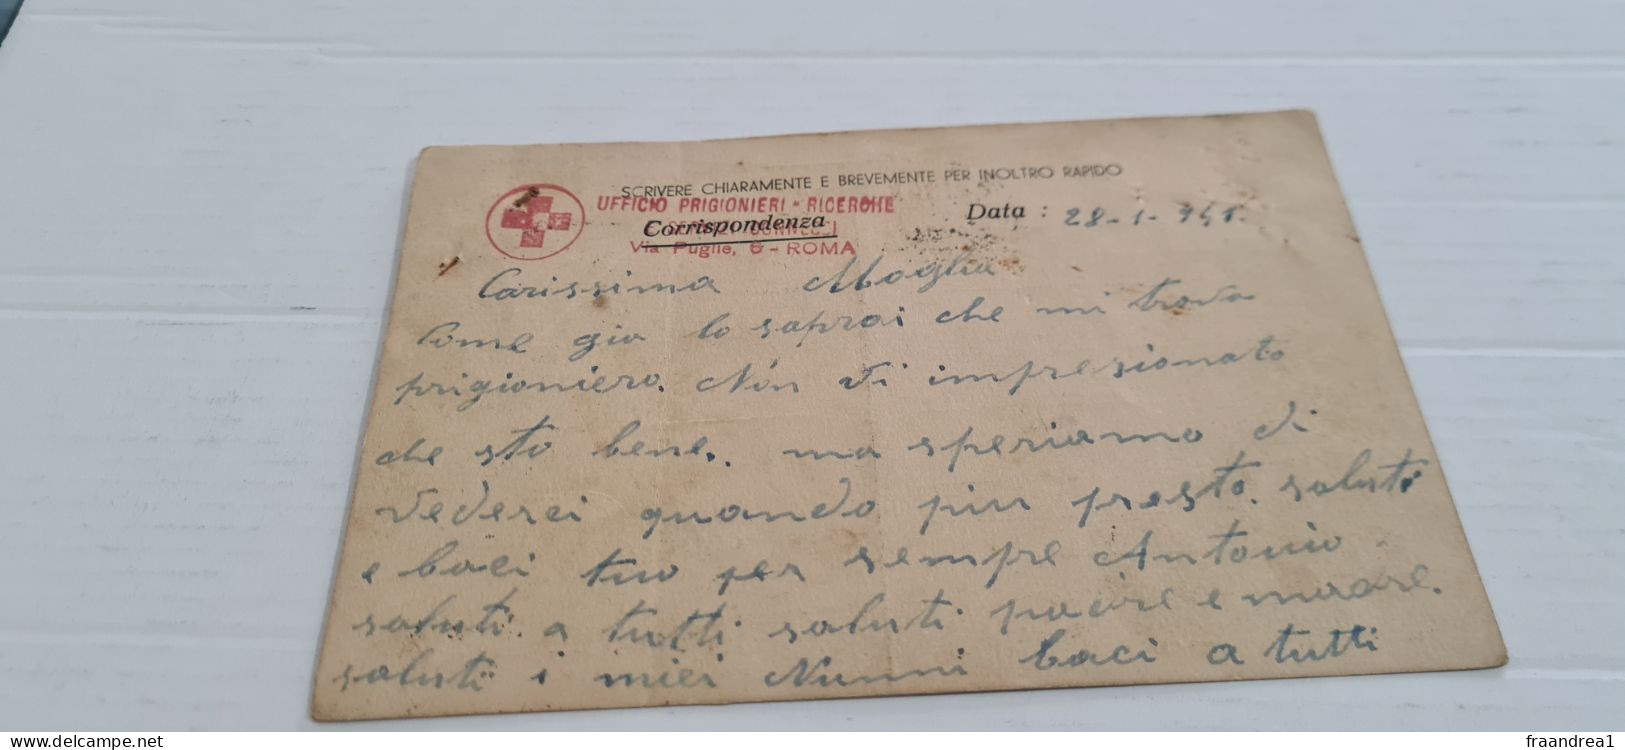 SCRIVERE CHIARAMENTE E BREVEMENTE PER INOLTRO RAPIDO
UFFICIO PRIGIONIERI - RICERCHE
Corrispondenza
Data : 28-1-941.
Via Puglie, 6 - ROMA
Carissima Moglia
Come gia lo saprai che mi trova
prigioniero. Non vi impresionato
che sto bene. ma speriamo di
vederci quando piu presto. saluti
e baci tuo per sempre Antonio
saluti a tutti saluti padre e madre.
saluti i miei Nunni baci a tutti
Delcampe.net
fraandrea1